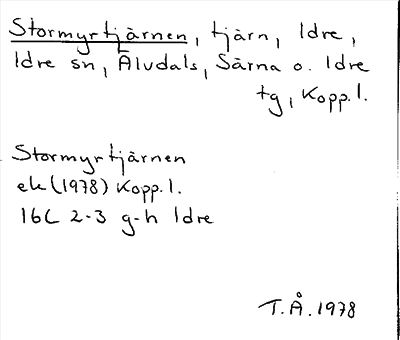 Stormyrtjärnen, tjärn, Idre,
Idre sn, Älvdals, Särna o. Idre
tg, Kopp.l.
Stormyrtjärnen
ek (1978) Kopp.l.
16C 2-3 g-h Idre
T.Å. 1978